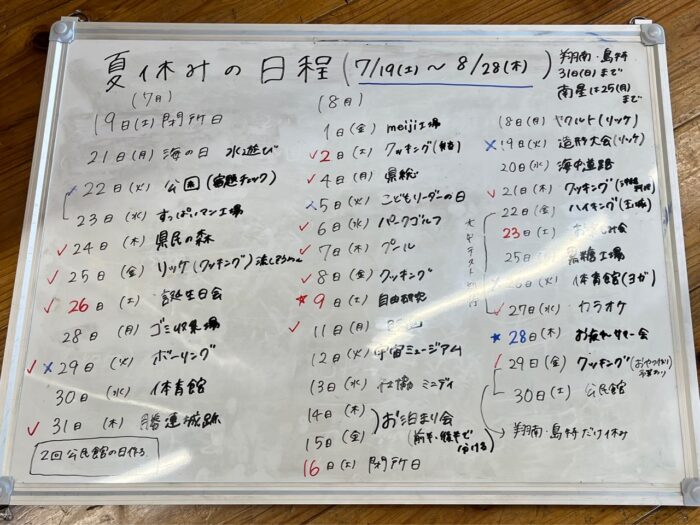 夏休みの日程(7/19(土)～8/28(木))
翔南・島特
31日(日)まで
南星は25(月)
まで
(7月)
19日(土)閉所日
21日(月)海の日 水遊び
22日(火)公園(宿題チェック)
23日(水)すっぱいマン工場
24日(木)県民の森
25日(金)リッケ(クッキング)流しそうめん
26日(土)誕生日会
28日(月)ゴミ収集場
29日(火)ボーリング
30日(水)体育館
31日(木)勝連城跡
2回公民館の日作る
(8月)
1日(金)meiji工場
2日(土)クッキング
4日(月)県総
5日(火)こどもリーダーの日
6日(水)パークゴルフ
7日(木)プール
8日(金)クッキング
9日(土)自由研究
11日(月)
12日(火)宇宙ミュージアム
13日(水)社協 ミニデイ
14日(木)
15日(金)
お泊まり会
(前半・後半で
分ける)
16日(土)閉所日
18日(月)ヤクルト(リッケ)
19日(火)造形大会(リッケ)
20日(水)海中道路
21日(木)クッキング
22日(金)ハイキング
23日(土)
25日(月)黒糖工場
26日(火)体育館(ヨガ)
27日(水)カラオケ
28日(木)お疲れサマー会
29日(金)クッキング(おやつ作り
30日(土)公民館
翔南・島特だけ休み